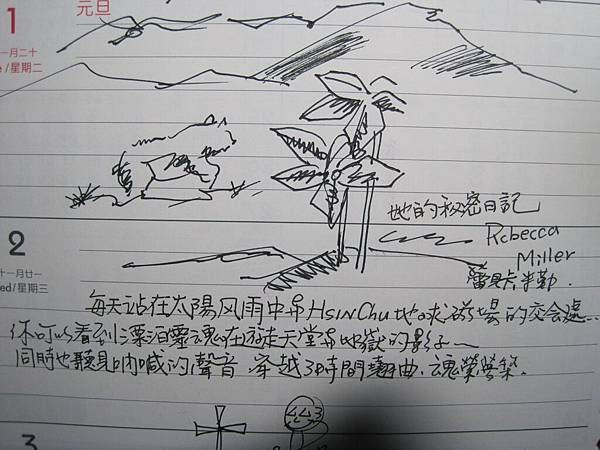 1
元旦
一月二十
e/星期二
她的秘密日記
Rebecca
Miller
雷貝卡 米勒.
2
十一月廿一
ed/星期三
每天站在太陽风雨中与HsinChu地球磁場的交会處...
你可以看到漂泊靈魂在游走天堂与地獄的影子~
同時也聽見吶喊的聲音.穿越時間扭曲.魂
3